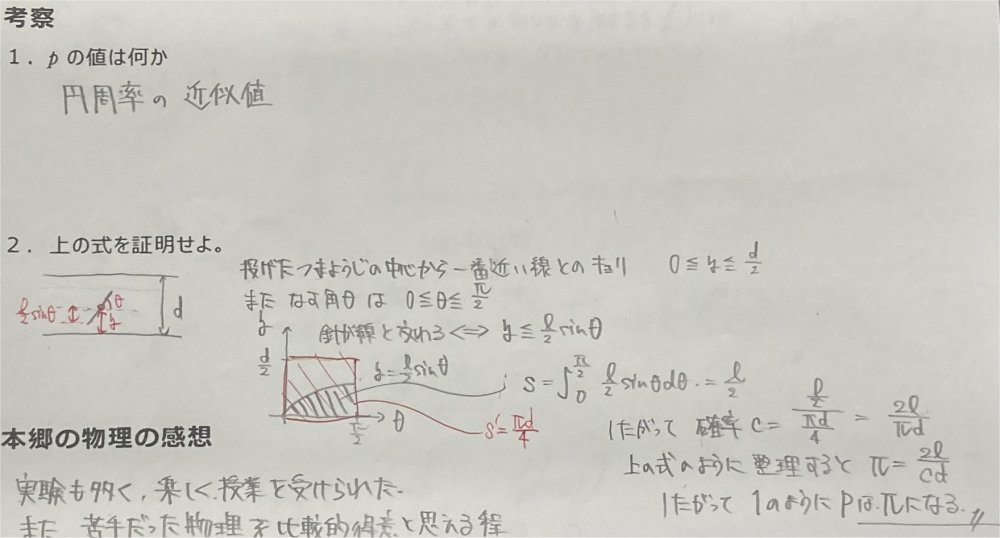 考察
1. p の値は何か
円周率の近似値
2. 上の式を証明せよ。
投げたつまようじの中心から一番近い線とのキョリ 0≦y≦d/2
また なす角θは 0≦θ≦π/2
針が線と交わる⟺ y≦l/2 sinθ
l/2 sinθ
θ
y
d
y
d/2
y=l/2 sinθ
π/2
θ
; S=∫0^π/2 l/2 sinθdθ=l/2
S'=πd/4
したがって 確率 C=(l/2)/(πd/4)=2l/πd
上の式のように整理すると π=2l/cd
したがって 1のように PはπになるÂ.
本郷の物理の感想
実験も多く、楽しく授業を受けられた.
また 苦手だった物理を比較的得意と思える程